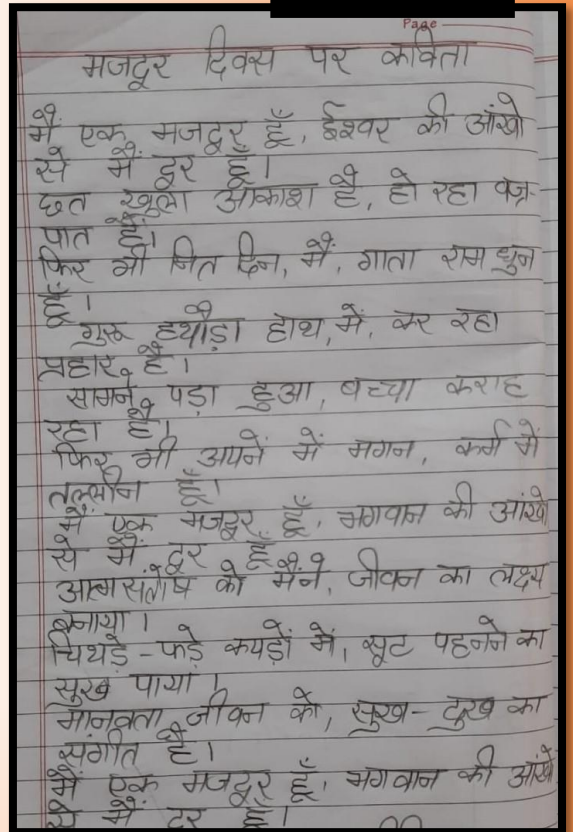 Page
मजदूर दिवस पर कविता
मैं एक मजदूर हूँ, ईश्वर की आंखो
से मैं दूर हूँ।
छत खुला आकाश है, हो रहा वज्र-
पात है।
फिर भी नित दिन, मैं, गाता राम धुन
हूँ।
गुरू हथौड़ा हाथ, में, कर रहा
प्रहार है।
सामने पड़ा हुआ, बच्चा कराह
रहा है।
फिर भी अपनें में मगन, कर्म में
तल्लीन हूँ।
मैं एक मजदूर हूँ, भगवान की आंखो
से मैं दूर हूँ।
आत्मसंतोष को मैंने, जीवन का लक्ष्य
बनाया।
चिथड़े-फड़े कपड़ों में, सूट पहनने का
सुख पाया।
मानवता जीवन को, सुख-दुख का
संगीत है।
मैं एक मजदूर हूँ, भगवान की आंखों
से मैं दूर हूँ।